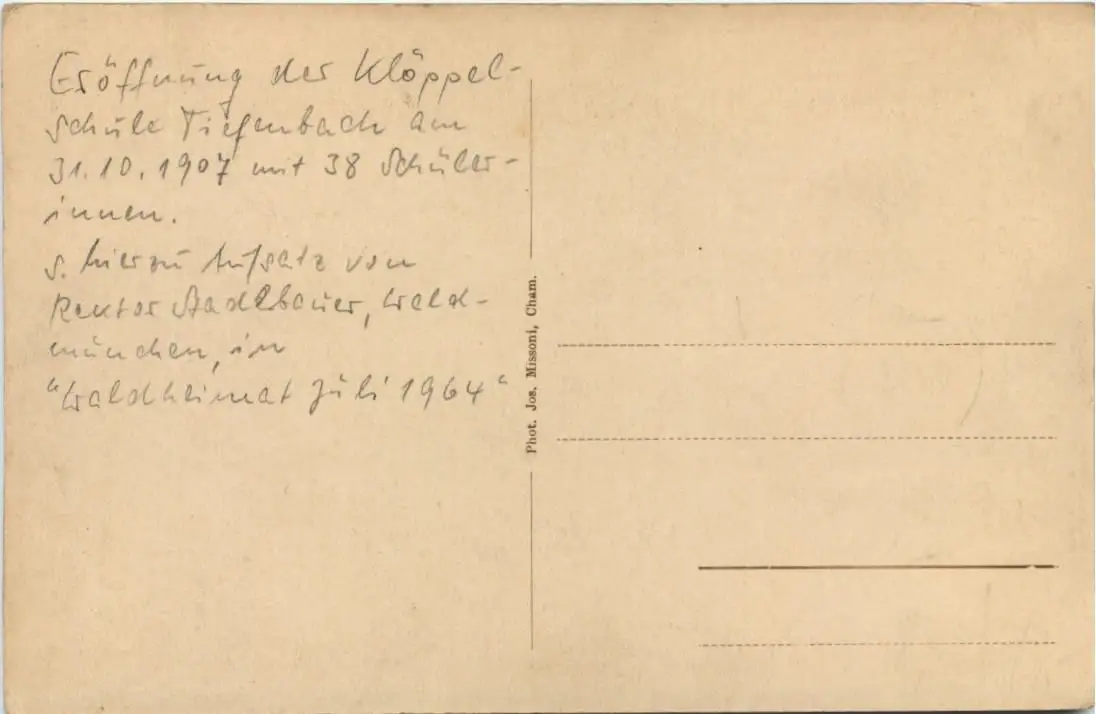 Eröffnung der Klöppel-
schule Tiefenbach am
31.10.1907 mit 38 Schüler-
innen.
s. hierzu Aufsatz von
Rektor Stadlbauer, Wald-
münchen, in
"Waldheimat Juli 1964"
Phot. Jos. Missoni, Cham.